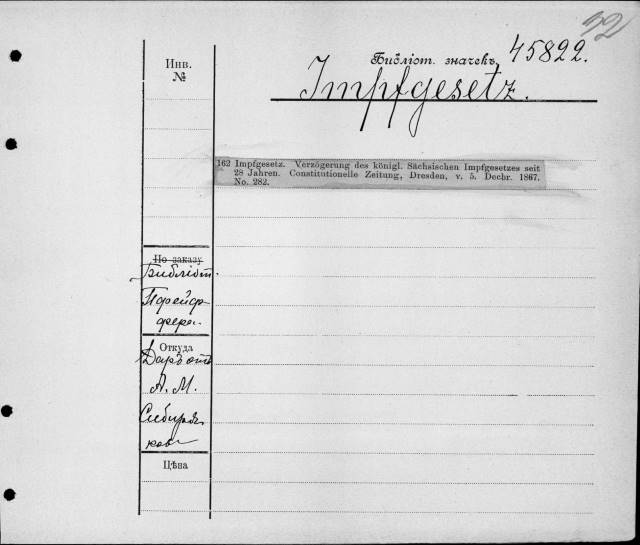 52
Библіот. значекъ 45822.
Impfgesetz.
Инв.
№
162 Impfgesetz. Verzögerung des königl. Sächsischen Impfgesetzes seit
28 Jahren. Constitutionelle Zeitung, Dresden, v. 5. Decbr. 1867.
No. 282.
По заказу
Библіот.
Пфейф
фера.
Откуда
Даръ отъ
А. М.
Сибиря
кова
Цѣна